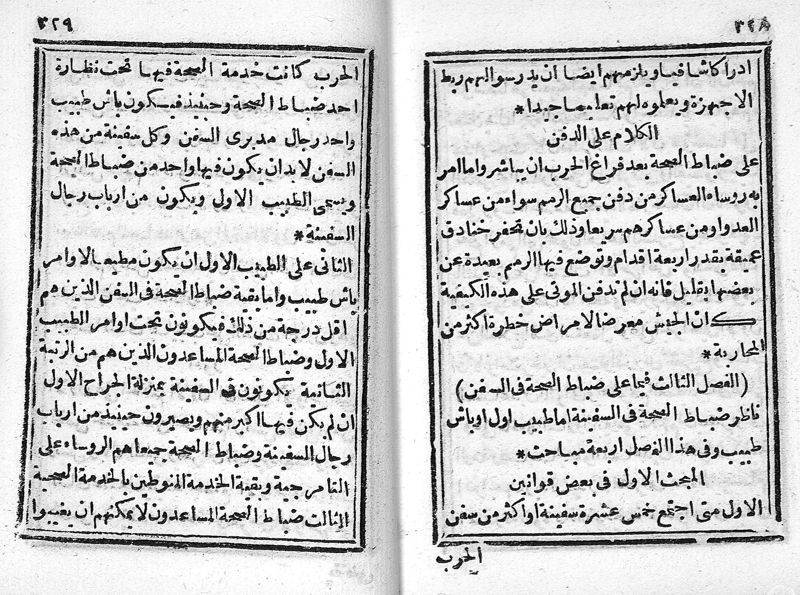 ٣٢٨
ادراكا شافيا ويلزمهم ايضا أن يدرسوا لهم ربط
الاجهزة ويعلموه لهم تعليما جيدا *
الكلام على الدفن
على ضباط الصحة بعد فراغ الحرب ان يباشروا ما امر
به روساء العساكر من دفن جميع الرمم سواء من عساكر
العدو او من عساكرهم سريعا وذلك بان تحفر خنادق
عميقة بقدر اربعة اقدام وتوضع فيها الرمم بعيدة عن
بعضها بقليل فانه ان لم تدفن الموتى على هذه الكيفية
كان الجيش معرضا لامراض خطرة اكثر من
المحاربة *
(الفصل الثالث فيما على ضباط الصحة فى السفن)
ناظر ضباط الصحة فى السفينة اما طبيب اول او باش
طبيب وفى هذا الفصل اربعة مباحث *
المبحث الاول فى بعض قوانين
الاول متى اجتمع خمس عشرة سفينة او اكثر من سفن
الحرب
٣٢٩
الحرب كانت خدمة الصحة فيها تحت نظارة
احد ضباط الصحة وحينئذ فيكون باش طبيب
واحد رجال مديرى السفن وكل سفينة من هذه
السفن لابد ان يكون فيها واحد من ضباط الصحة
ويسمى الطبيب الاول ويكون من ارباب رجال
السفينة *
الثانى على الطبيب الاول ان يكون مطيعا لاوامر
باش طبيب واما بقية ضباط الصحة فى السفن الذين هم
اقل درجة من ذلك فيكونون تحت اوامر الطبيب
الاول وضباط الصحة المساعدون الذين هم من الرتبة
الثانية يكونون فى السفينة بمنزلة الجراح الاول
ان لم يكن فيها اكبر منهم ويصيرون حينئذ من ارباب
رجال السفينة وضباط الصحة جميعا هم الروساء على
التامرجية وبقية الخدمة المنوطين بالخدمة الصحية
الثالث ضباط الصحة المساعدون لا يمكنهم ان يغيبوا